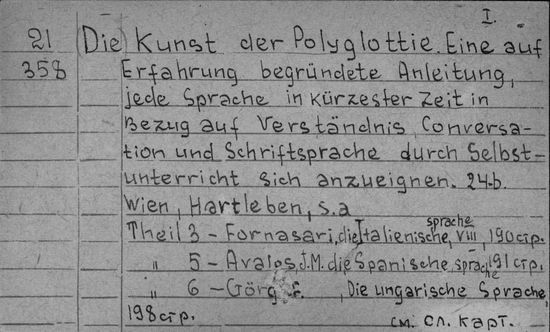 I.
21 (Die) Kunst der Polyglottie. Eine auf
358 Erfahrung begründete Anleitung,
jede Sprache in kürzester Zeit in
Bezug auf Verständnis Conversa-
tion und Schriftsprache durch Selbst-
unterricht sich anzueignen. 24.b.
Wien, Hartleben, s.a
Theil 3 – Fornasari, die Italienische, sprache VIII, 190 стр.
" 5 – Avalos, J.M. die Spanische, sprache 191 стр.
" 6 – Görg F. , Die ungarische Sprache
198 стр. см. сл. карт.